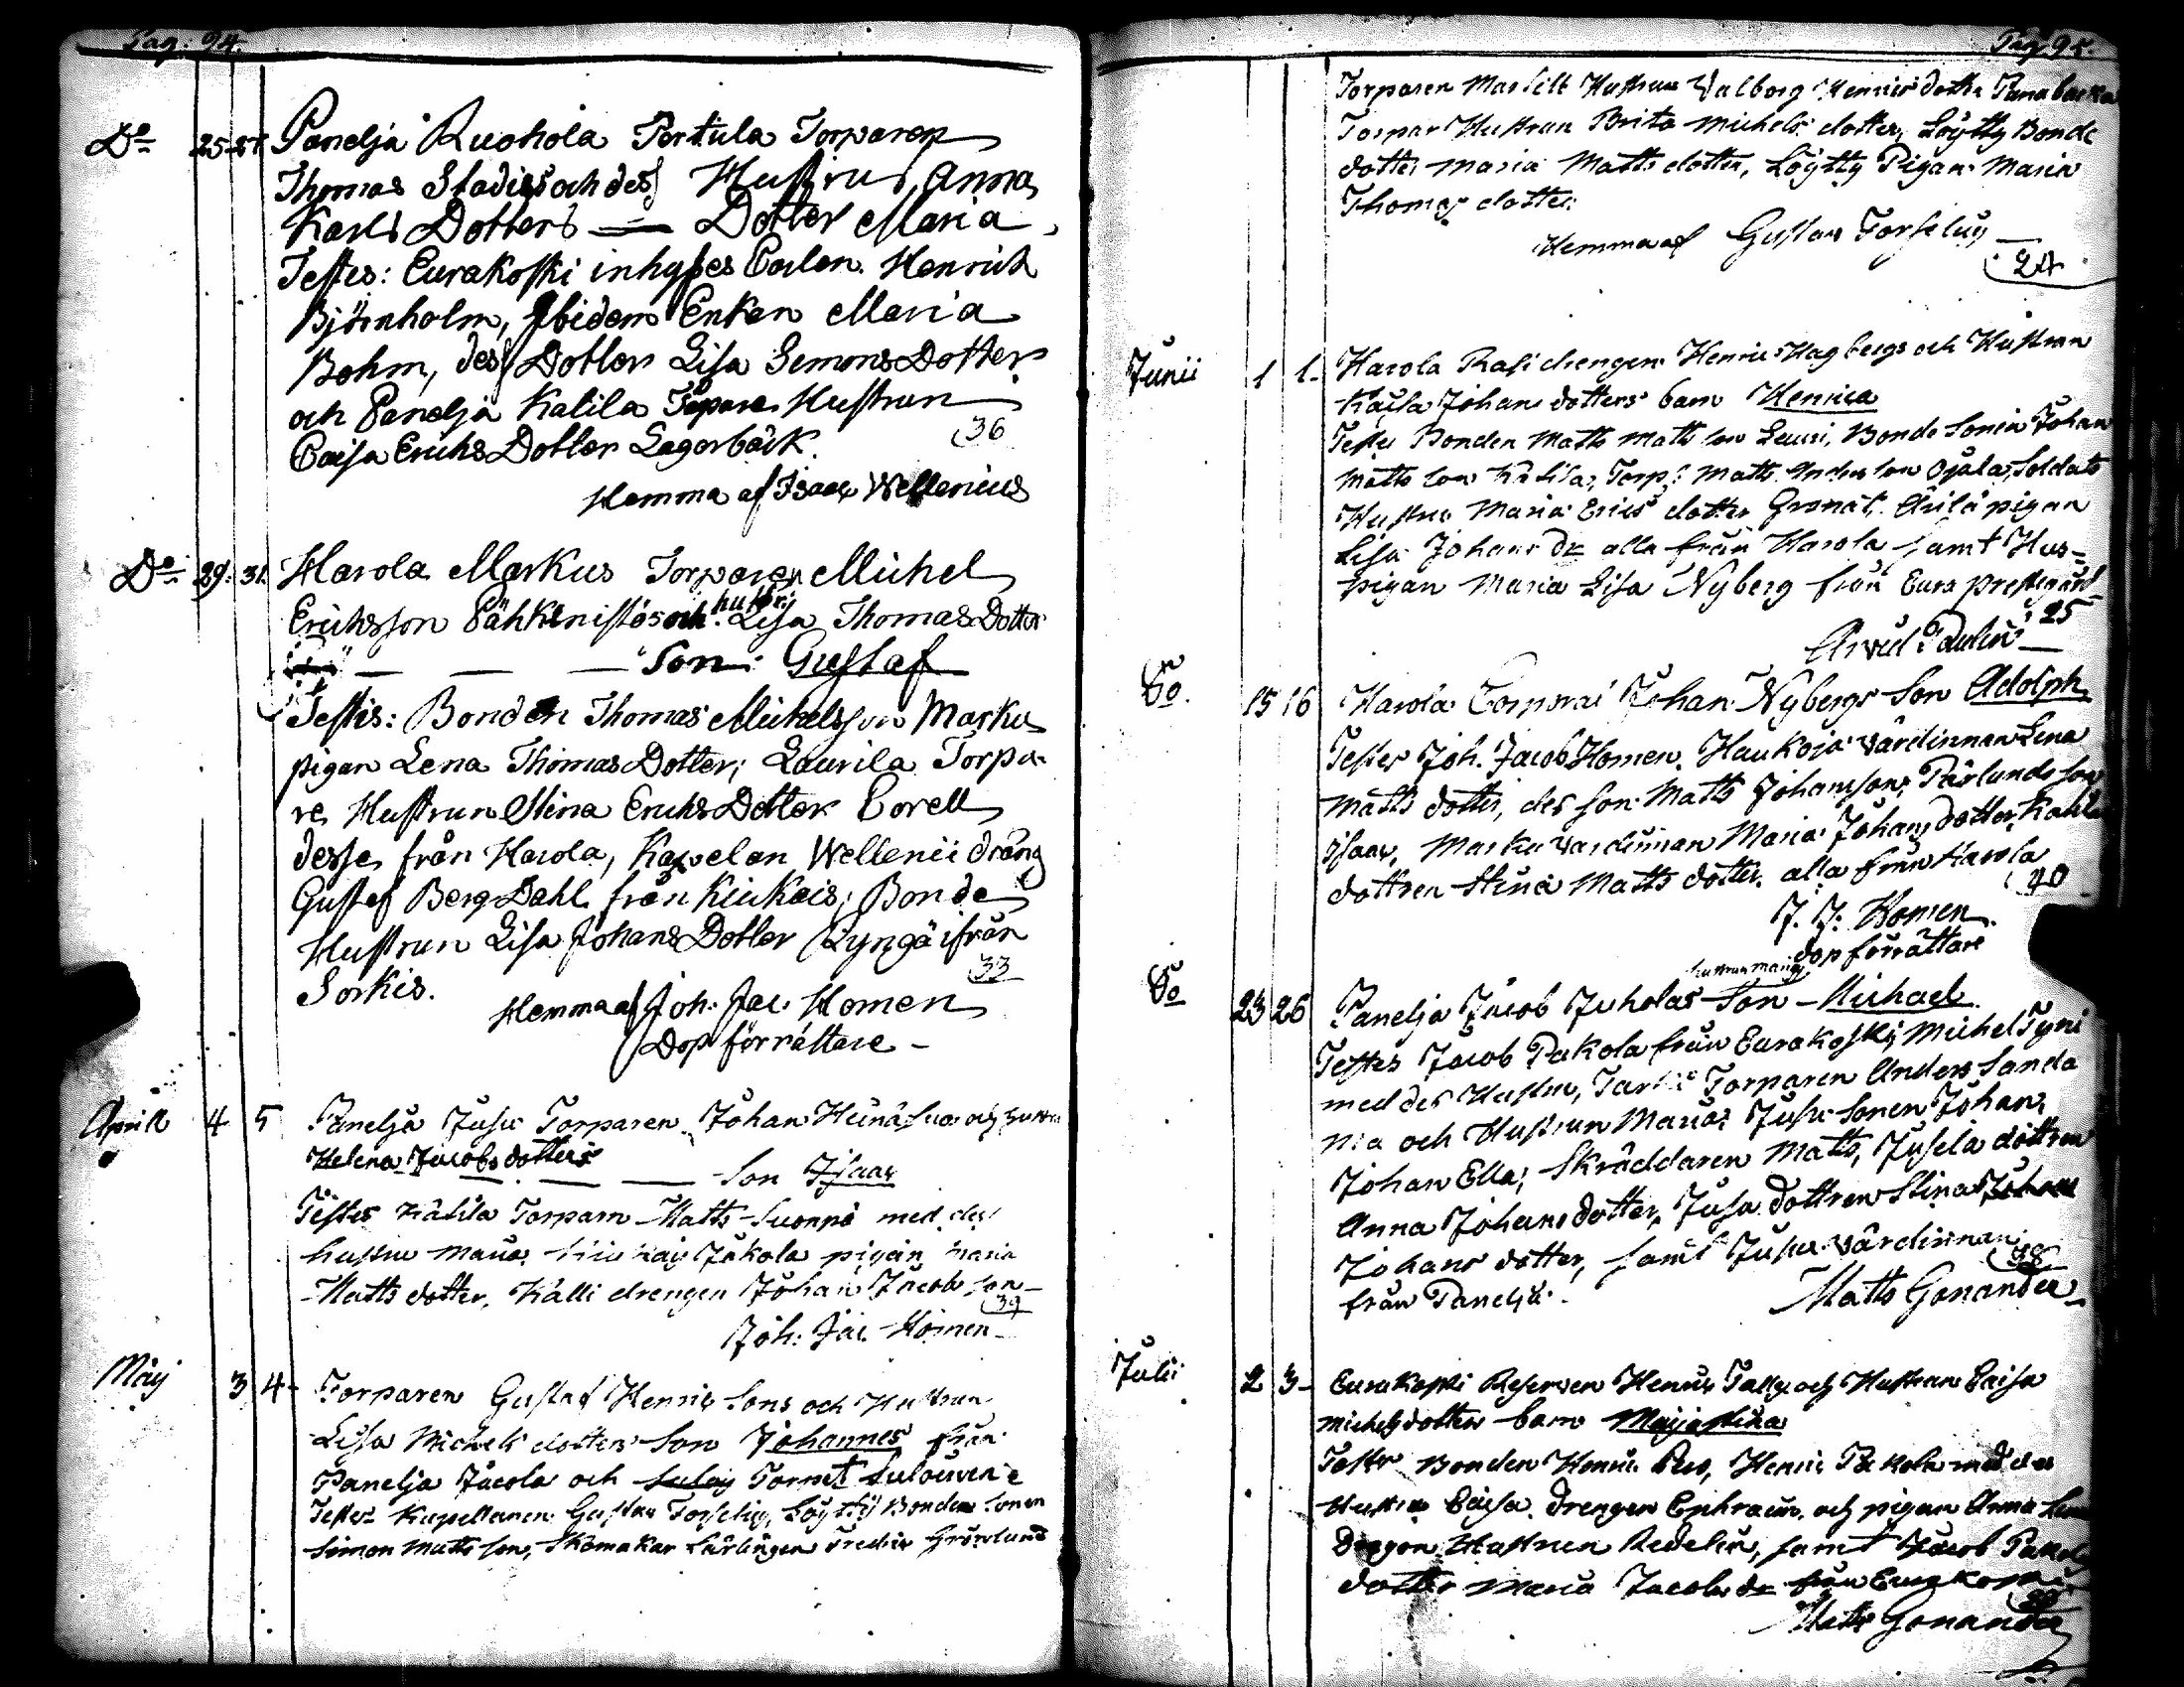 Pag: 94.
Do 25 27 Panelja Ruohola Pertula Torparen
Thomas Stadius och dess Hustrus, Anna
Karls Dotters — Dotter Maria
Testes: Eurakoski inhyses Carlen Henrich
Björnholm, Ibidem Enkan Maria
Bohm, dess Dotter Lisa Semons Dotter
och Panelja Katila Torpare Hustrun
Caisa Erichs Dotter Lagerbäck. 36
Hemma af Isaac Wellenius
Do 29. 31. Harola Markus Torparen Michel
Erichsson Pähkenistös och hustr: Lisa Thomas Dotter
Son: Gustaf
Testis: Bonden Thomas Michelsson Marku
pigan Lena Thomas Dotter; Laurila Torpa-
re Hustrun Stina Erichs Dotter Corell
desse från Harola, Kapelan Wellenii dräng
Gustaf Berg Dahl från Kiukais; Bonde
Hustrun Lisa Johans Dotter Kyngä ifrån
Sorkis. 33
Hemma af Joh: Jac. Homen
Dop förrättare
Aprill 4 5 Panelja Jusu Torparen Johan Heinäsuo och hustru
Helena Jacobs dotters
Son Isaac
Testes Kätila Torparn Matts Suonpä med dess
hustru Maria, Jakola pigan Maria
Matts dotter, Källi drengen Johan Jacobs son
39
Joh: Jac. Homen
Maij 3 4 Torparen Gustaf Henrics Sons och Hustrun
Lisa Michels dotters Son Johannes från
Panelja Jacola och Tornet
Testes Kapellanen Gustav Forselius, Löytty Bonde sonen
Simon Matts son, Skomakar Lärlingen Grönlund
Pag 95.
Torparen Hustrun Valborg Henrics dotter
Torpar Hustrun Brita Michels dotter, Löytty Bonde
dotter Maria Matts dotter, Löytty Pigan Maria
Thomas dotter.
Hemma af Gustav Forselius
24
Junii 1 1 Harola Rasi drengen Henric Hagbergs och Hustrun
Kaisa Johans dotters barn Henrica
Testes Bonden Matts Matts son Lauri, Bonde Sonen Johan
Matts son Kätila, Torp: Matts Anders son Ojala, Soldats
Hustru Maria Erics dotter Granat, pigan
Lisa Johans dr alla från Harola samt Hus-
pigan Maria Lisa Nyberg från Eura prestgård
25
Arvid Paulin
Do. 15 16 Harola Corporal Johan Nybergs Son Adolph
Testes Joh. Jacob Homen, Haukoja värdinnan Lena
Matts dotter, des son Matts Johansson, Pärlunds son
Isaac, Marku Värdinnan Maria Johans dotter, Katila
dottren Stina Matts dotter, alla från Harola
40
J. J. Homen
dop förrättare
Do 23 26 Panelja Jacob Juholas Son Michael
Testes Jacob Pakola från Eurakoski, Michel Tyni
med des Hustru, Torparen Anders Santa
och Hustrun Maria, Jusu Sonen Johan,
Johan Ella, Skräddaren Matts, Jusela dottren
Anna Johans dotter, Jusa dottren Stina
Johans dotter, samt Jusu värdinnan
från Panelja. 38
Matts Gonander
Julii 2 3 Eurakoski Reserven Henric Tally och Hustrun Caisa
Michels dotters barn Maija Stina
Testes Bonden Henric Henric Pakola med des
Hustru Caisa, Drengen Ephraim, och pigan Anna
Dragon Hustrun Redelin, samt Jacob
dotter Maria Jacobs dr från Eurakoski
Matts Gonander